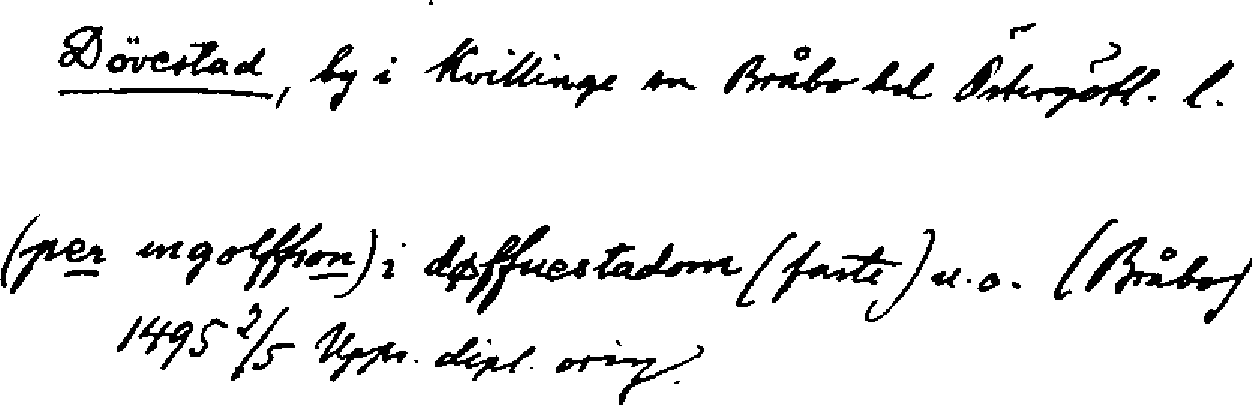 Dövestad, by i Kvillinge sn Bråbo hd Östergötl. l.
(per ingolffson) i døffuestadom (faste) u.a. (Bråbo)
1495 2/5 Upps. dipl. orig.